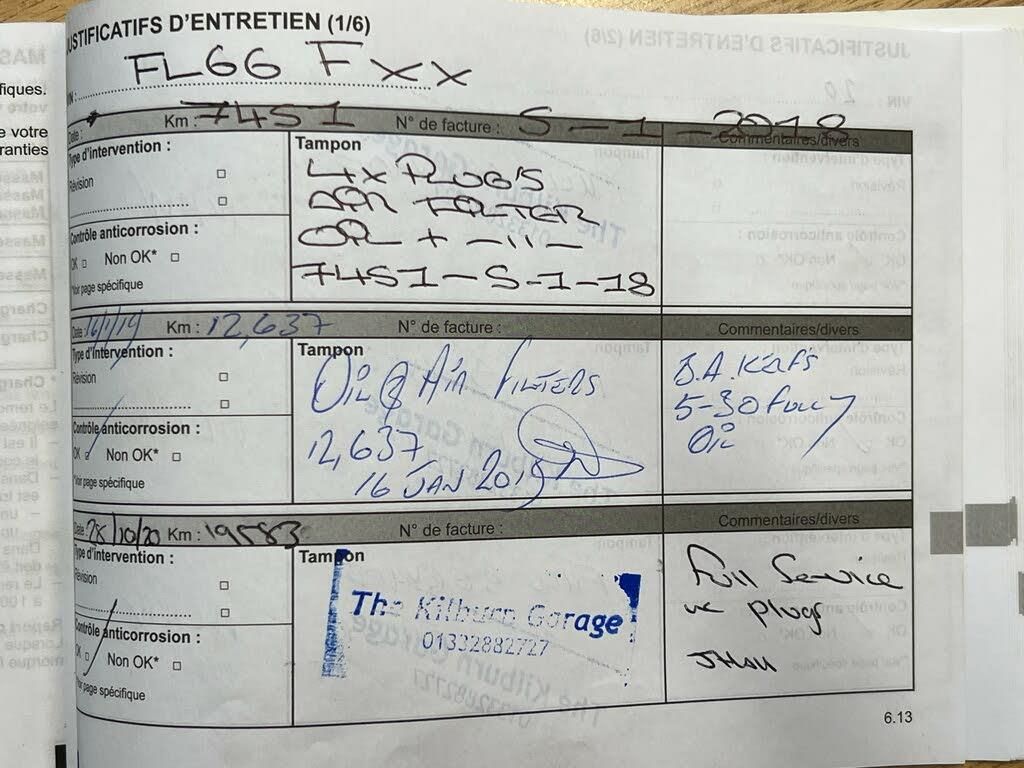 JUSTIFICATIFS D'ENTRETIEN (1/6)
VIN : FL66 FXX
Date : Km : 7451 N° de facture : 5-1-2018
Commentaires/divers
Type d'intervention :
Révision
Contrôle anticorrosion :
OK Non OK*
*Voir page spécifique
Tampon
4x PLUG'S
FILTER
OIL + -11-
7451-5-1-18
Date : 16/1/19 Km : 12,637 N° de facture : Commentaires/divers
Type d'intervention :
Révision
Contrôle anticorrosion :
OK Non OK*
*Voir page spécifique
Tampon
OIL & AIR FILTERS
12,637
16 JAN 2019
5-30 FULLY
OIL
Date : 28/10/20 Km : 19583 N° de facture : Commentaires/divers
Type d'intervention :
Révision
Contrôle anticorrosion :
OK Non OK*
*Voir page spécifique
Tampon
The Kilburn Garage
01332882727
Full Service
plugs
6.13
fiques.
e votre
ranties